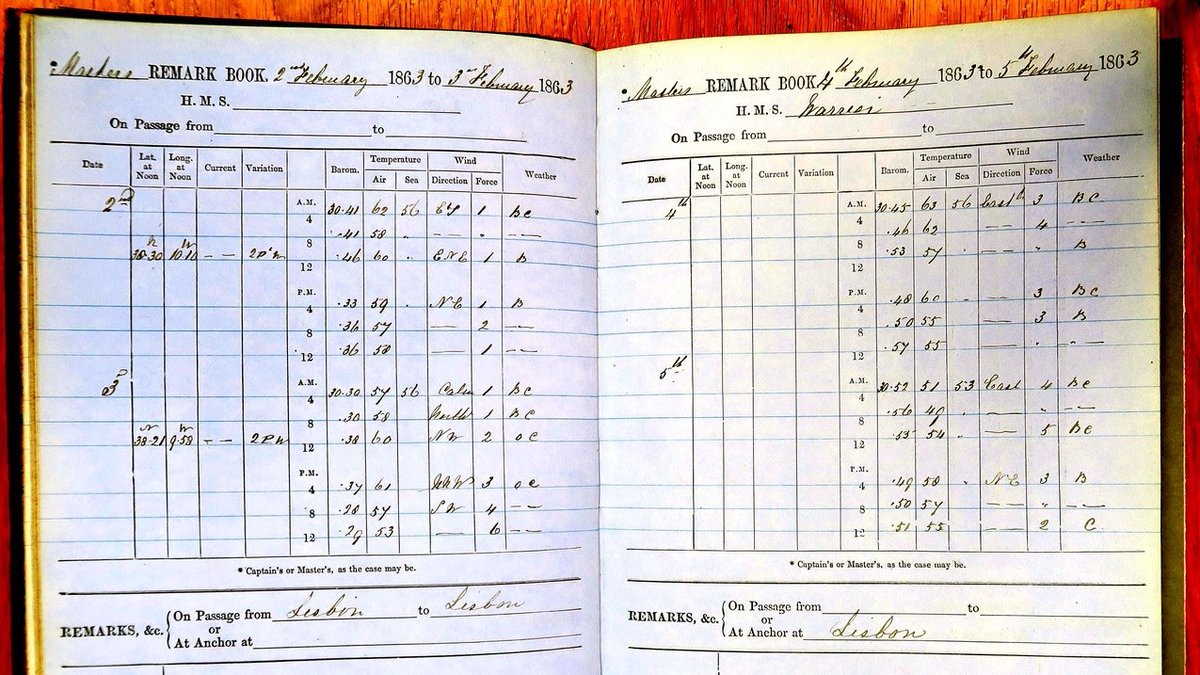 * Masters REMARK BOOK. 2nd February 1863 to 3rd February 1863
H. M. S.
On Passage from to
Date Lat. at Noon Long. at Noon Current Variation Barom. Temperature Air Sea Wind Direction Force Weather
2nd A.M. 4 30.41 62 56 1 BC
8 .41 58 " — " —
N W
38.30 10.10 — — 12 .46 60 " ENE 1 B
P.M. 4 .33 59 " NE 1 B
8 .36 57 — 2 —
12 .36 58 — 1 —
3rd A.M. 4 30.30 57 56 Calm 1 BC
8 .30 58 North 1 BC
N W
38.21 9.58 — — 12 .38 60 NW 2 OC
P.M. 4 .37 61 NNW 3 OC
8 .28 57 SW 4 —
12 .29 53 — 6 —
* Captain's or Master's, as the case may be.
REMARKS, &c. { On Passage from Lisbon to Lisbon
or
At Anchor at
* Masters REMARK BOOK 4th February 1863 to 5th February 1863
H. M. S. Warrior
On Passage from to
Date Lat. at Noon Long. at Noon Current Variation Barom. Temperature Air Sea Wind Direction Force Weather
4th A.M. 4 30.45 63 56 3 BC
8 .46 62 — 4 —
12 .53 57 — " B
P.M. 4 .48 60 — 3 BC
8 .50 55 — 3 B
12 .57 55 — " —
5th A.M. 4 30.52 51 53 East 4 BC
8 .56 49 — " —
12 .55 54 — 5 BC
P.M. 4 .49 58 NE 3 B
8 .50 57 — " —
12 .51 55 — 2 C
* Captain's or Master's, as the case may be.
REMARKS, &c. { On Passage from to
or
At Anchor at Lisbon